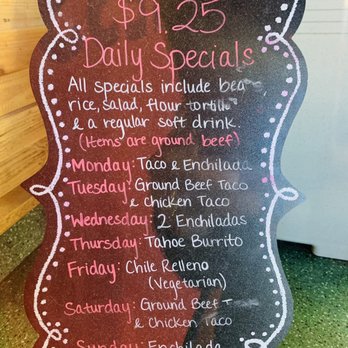 $9.25
Daily Specials
All specials include
rice, salad, flour tortilla
& a regular soft drink.
(Items are ground beef)
Monday: Taco & Enchilada
Tuesday: Ground Beef Taco
& Chicken Taco
Wednesday: 2 Enchiladas
Thursday: Tahoe Burrito
Friday: Chile Relleno
(Vegetarian)
Saturday: Ground Beef
& Chicken Taco
Sunday: Enchilada